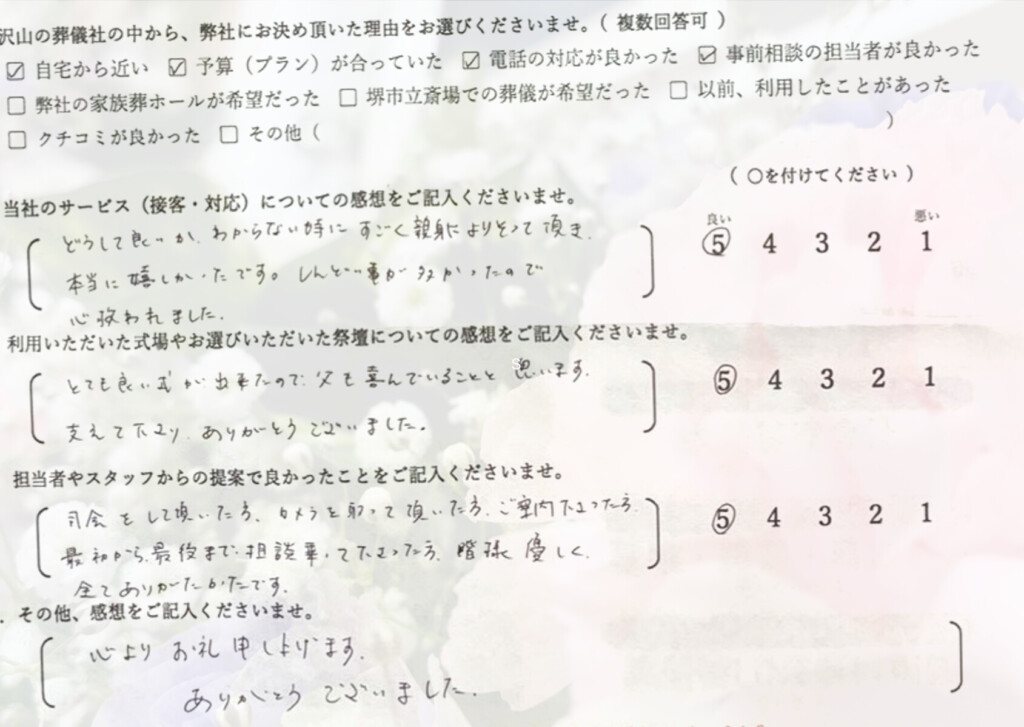 沢山の葬儀社の中から、弊社にお決め頂いた理由をお選びくださいませ。（ 複数回答可 ）
☑ 自宅から近い ☑ 予算（プラン）が合っていた ☑ 電話の対応が良かった ☑ 事前相談の担当者が良かった
□ 弊社の家族葬ホールが希望だった □ 堺市立斎場での葬儀が希望だった □ 以前、利用したことがあった
□ クチコミが良かった □ その他（ ）
（ ○を付けてください ）
当社のサービス（接客・対応）についての感想をご記入くださいませ。
良い 悪い
⑤ 4 3 2 1
どうして良いか、わからない時に すごく親身によりそって頂き、
本当に嬉しかったです。しんどい事が多かったので
心救われました。
利用いただいた式場やお選びいただいた祭壇についての感想をご記入くださいませ。
とても良い式が出来たので、父も喜んでいることと 思います。
⑤ 4 3 2 1
支えて下さり、ありがとうございました。
担当者やスタッフからの提案で良かったことをご記入くださいませ。
司会をして頂いた方、カメラを取って頂いた方、ご案内下さった方、
⑤ 4 3 2 1
最初から最後まで相談乗って下さった方、皆様優しく、
全てありがたかったです。
. その他、感想をご記入くださいませ。
心よりお礼申し上げます。
ありがとうございました。